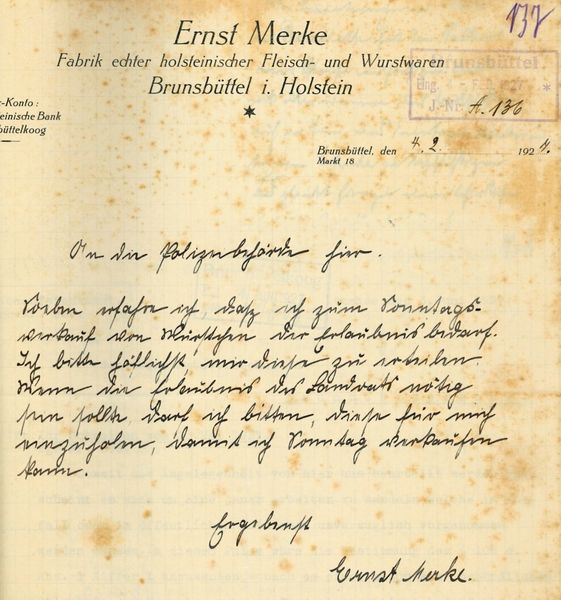 137
Ernst Merke
Fabrik echter holsteinischer Fleisch- und Wurstwaren
Brunsbüttel i. Holstein
Brunsbüttel
Eing.
J.-Nr. A. 136
-Konto:
einische Bank
büttelkoog
Brunsbüttel, den 4. 2. 1927.
Markt 18
An die Polizeibehörde hier.
Soeben erfahre ich daß ich zum Sonntags-
verkauf von Würstchen der Erlaubnis bedarf.
Ich bitte höflichst, mir diese zu erteilen.
Wenn die Erlaubnis des Landrats nötig
sein sollte, darf ich bitten, diese für mich
einzuholen, damit ich Sonntag verkaufen
kann.
Ergebenst
Ernst Merke.